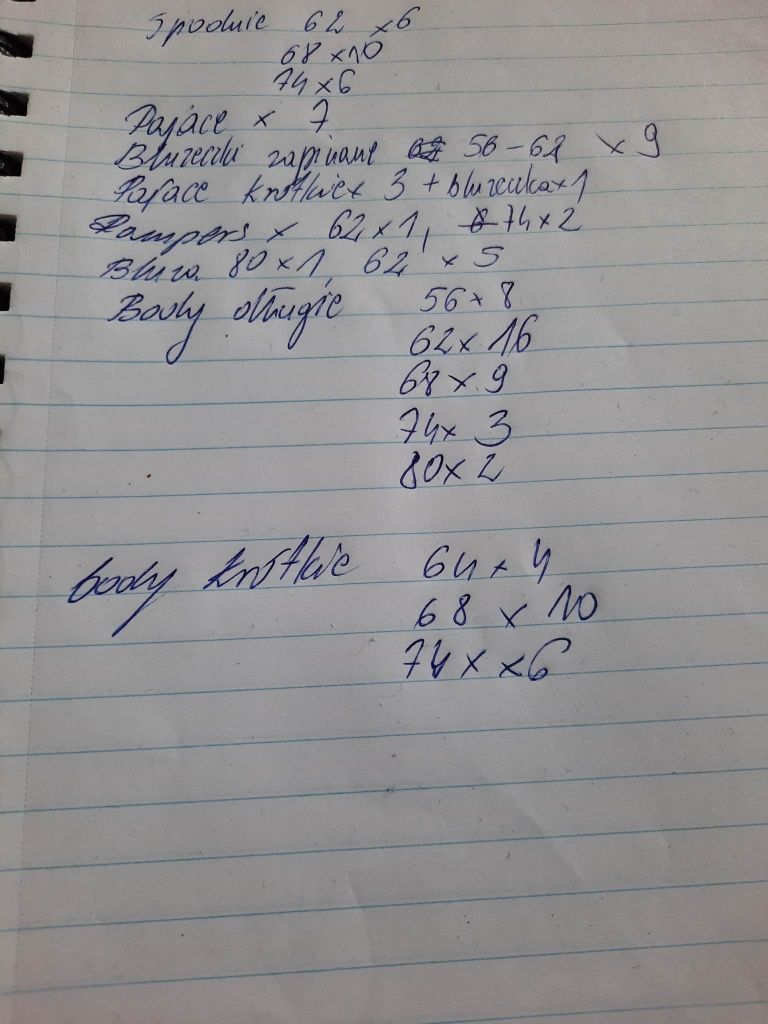 Spodnie 62 x 6
68 x 10
74 x 6
Pajace x 7
Bluzeczki zapinane 56 - 62 x 9
Pajace krótkie x 3 + bluzeczka x 1
Rampers x 62 x 1, 74 x 2
Bluza 80 x 1, 62 x 5
Body długie 56 x 8
62 x 16
68 x 9
74 x 3
80 x 2
body krótkie 64 x 4
68 x 10
74 x x 6